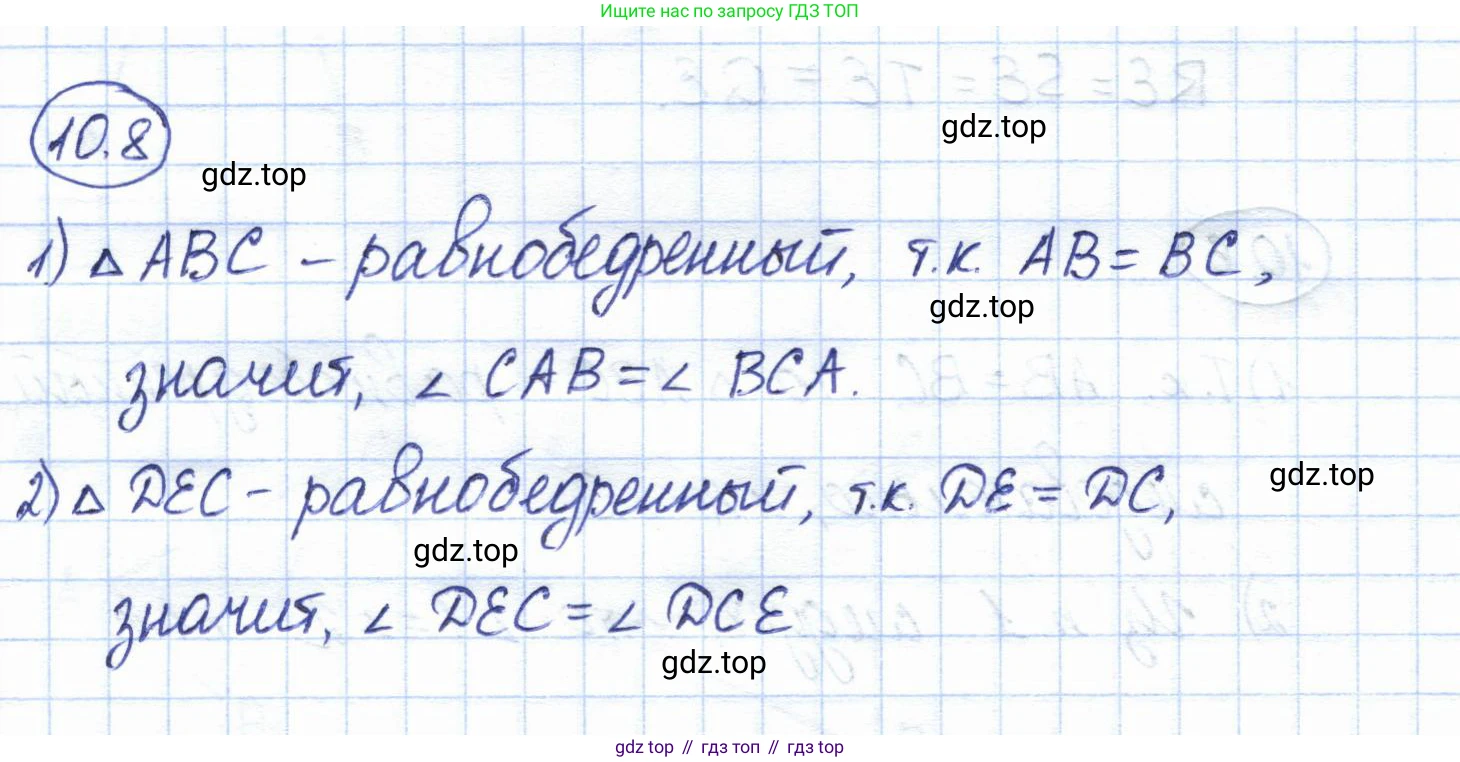 Ищите нас по запросу ГДЗ ТОП
gdz.top
10.8
gdz.top
1) △ ABC - равнобедренный, т.к. AB = BC,
gdz.top
значит, ∠ CAB = ∠ BCA.
2) △ DEC - равнобедренный, т.к. DE = DC,
gdz.top
gdz.top
значит, ∠ DEC = ∠ DCE
gdz.top
gdz top // гдз топ // гдз top